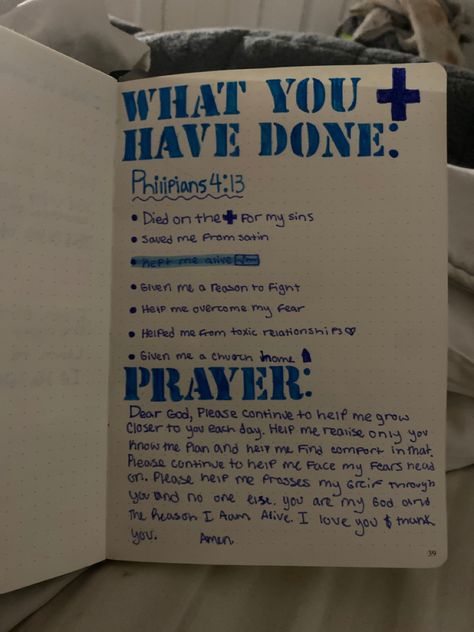 WHAT YOU
HAVE DONE:
Phiiipians 4:13
• Died on the ✚ For my sins
• Saved me From satin
• Kept me alive
• Given me a reason to Fight
• Help me overcome my Fear
• Helped me From toxic relationships ♡
• Given me a church home
PRAYER:
Dear God, Please continue to help me grow
Closer to you each day. Help me realise only you
Know the Plan and help me Find comfort in that.
Please continue to help me Face my Fears head
on. Please help me Prosses my Greif through
you and no one else. you are my God and
The Reason I Aam Alive. I love you & thank
you. Amen.
39